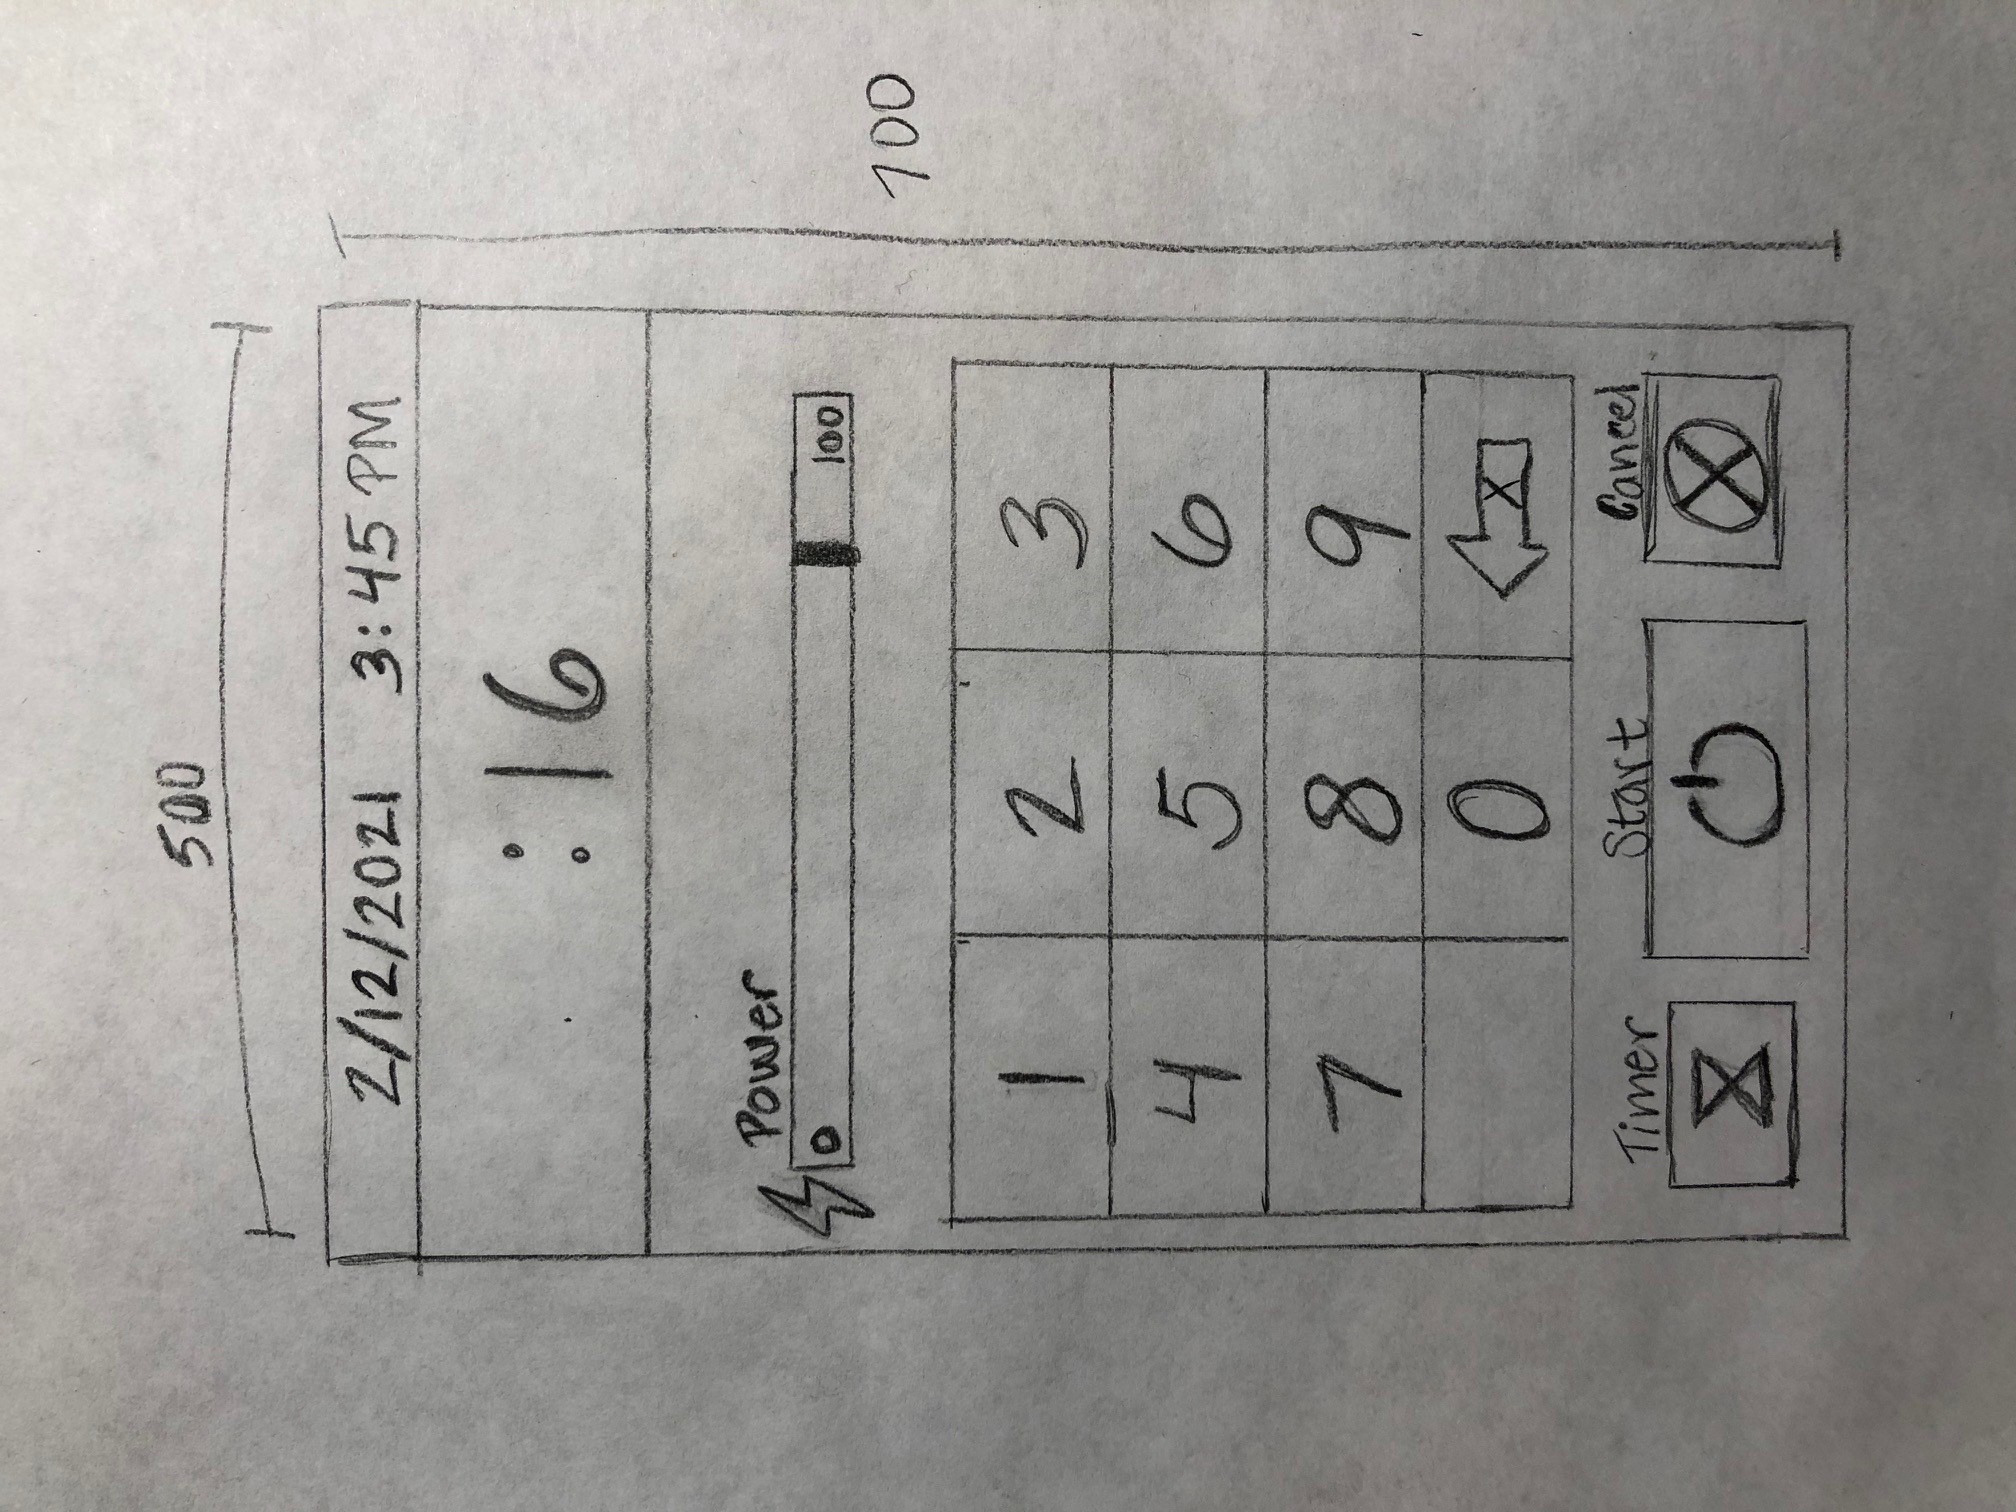 500
2/12/2021 3:45 PM
700
:16
Power
0 100
1 2 3
4 5 6
7 8 9
0 X
Timer Start Cancel